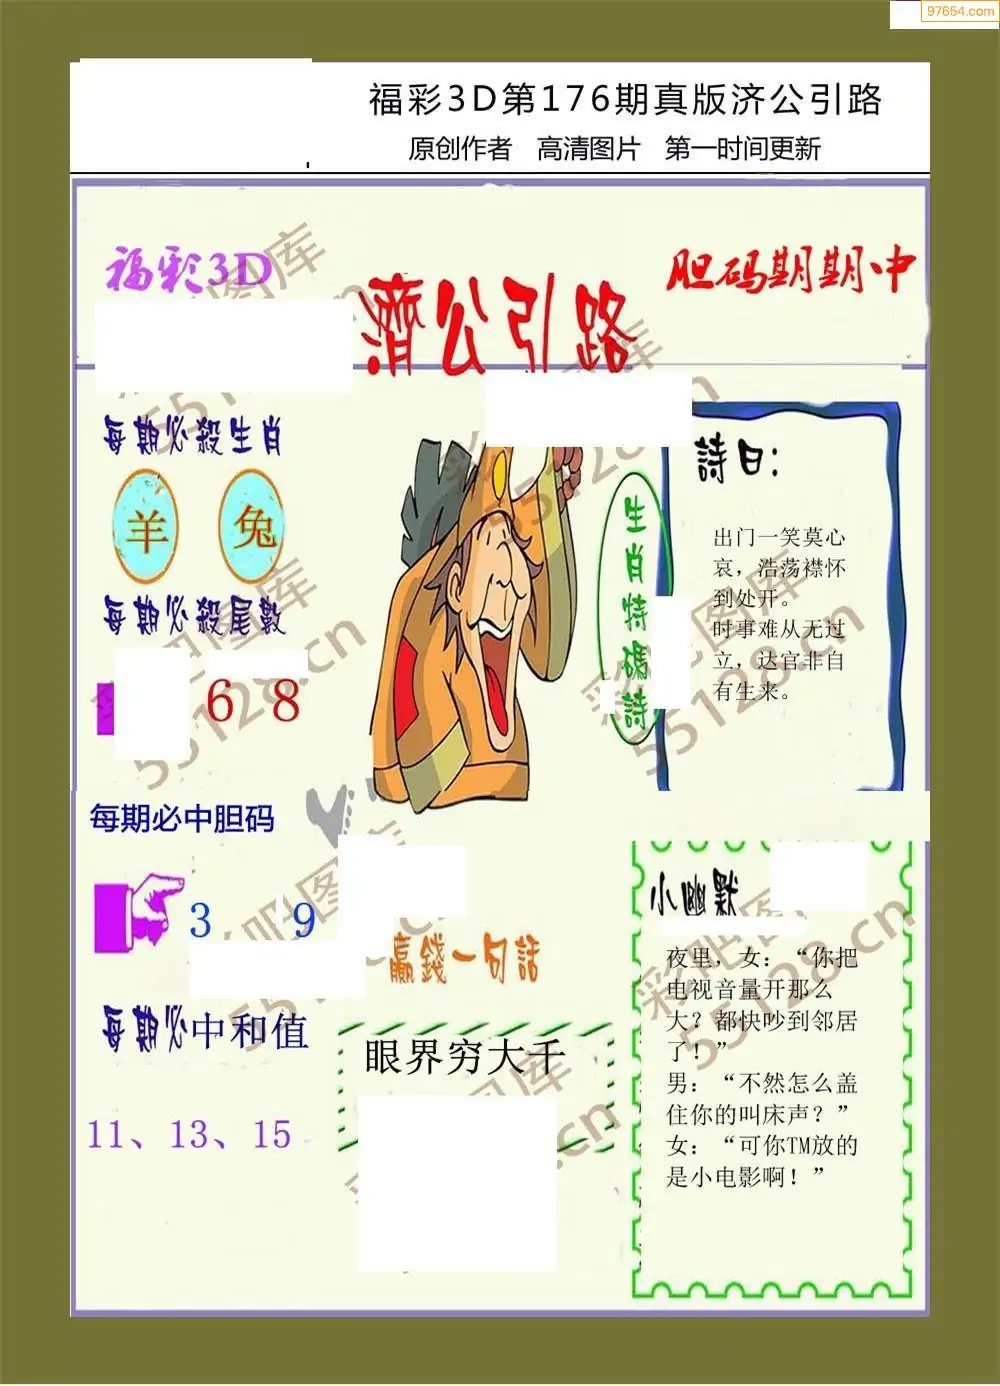 97654.com
福彩3D第176期真版济公引路
原创作者 高清图片 第一时间更新
福彩3D
濟公引路
胆码期期中
每期必殺生肖
羊 兔
每期必殺尾數
6 8
每期必中胆码
3 9
每期必中和值
11、13、15
生肖特碼詩
詩曰:
出门一笑莫心
哀，浩荡襟怀
到处开。
时事难从无过
立，达官非自
有生来。
贏錢一句話
眼界穷大千
小幽默
夜里，女：“你把
电视音量开那么
大？都快吵到邻居
了！”
男：“不然怎么盖
住你的叫床声？”
女：“可你TM放的
是小电影啊！”
彩吧图库
55128.cn